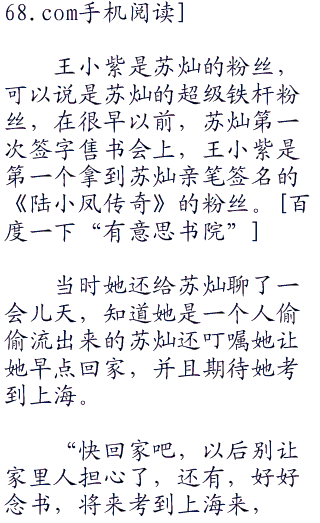 68.com手机阅读]
王小紫是苏灿的粉丝，
可以说是苏灿的超级铁杆粉
丝，在很早以前，苏灿第一
次签字售书会上，王小紫是
第一个拿到苏灿亲笔签名的
《陆小凤传奇》的粉丝。[百
度一下“有意思书院”]
当时她还给苏灿聊了一
会儿天，知道她是一个人偷
偷流出来的苏灿还叮嘱她让
她早点回家，并且期待她考
到上海。
“快回家吧，以后别让
家里人担心了，还有，好好
念书，将来考到上海来，